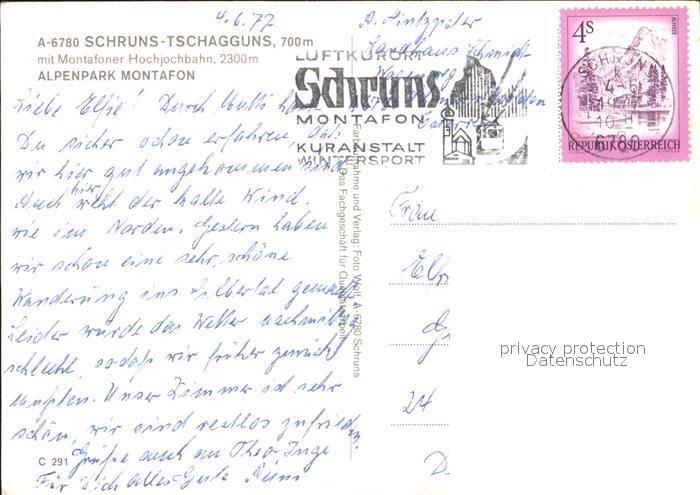 4.6.77
A-6780 SCHRUNS-TSCHAGGUNS, 700 m
mit Montafoner Hochjochbahn, 2300 m
ALPENPARK MONTAFON
Liebe Elfie! Durch Mutti hast
Du sicher schon erfahren, daß
wir hier gut angekommen sind.
Auch hier weht der kalte Wind.
wie im Norden. Gestern haben
wir schon eine sehr schöne
Wanderung ins Silbertal gemacht.
Leider wurde das Wetter nachmittags
schlecht, sodaß wir früher zurück
mußten. Unser Zimmer ist sehr
schön, wir sind restlos zufrieden.
Grüße auch an Theo, Inge
Für Dich alles Gute
C 291
Farbaufnahme und Verlag: Foto Wolf, A-6780 Schruns
Das Fachgeschäft für Qualitätsarbeit
A.
Landhaus Schmidt
Österreich
LUFTKURORT
Schruns
MONTAFON
KURANSTALT
WINTERSPORT
4S
REPUBLIK ÖSTERREICH
SCHRUNS
-4.-6.
1977-10
6780
Frau
Elfi
G
24
D
privacy protection
Datenschutz